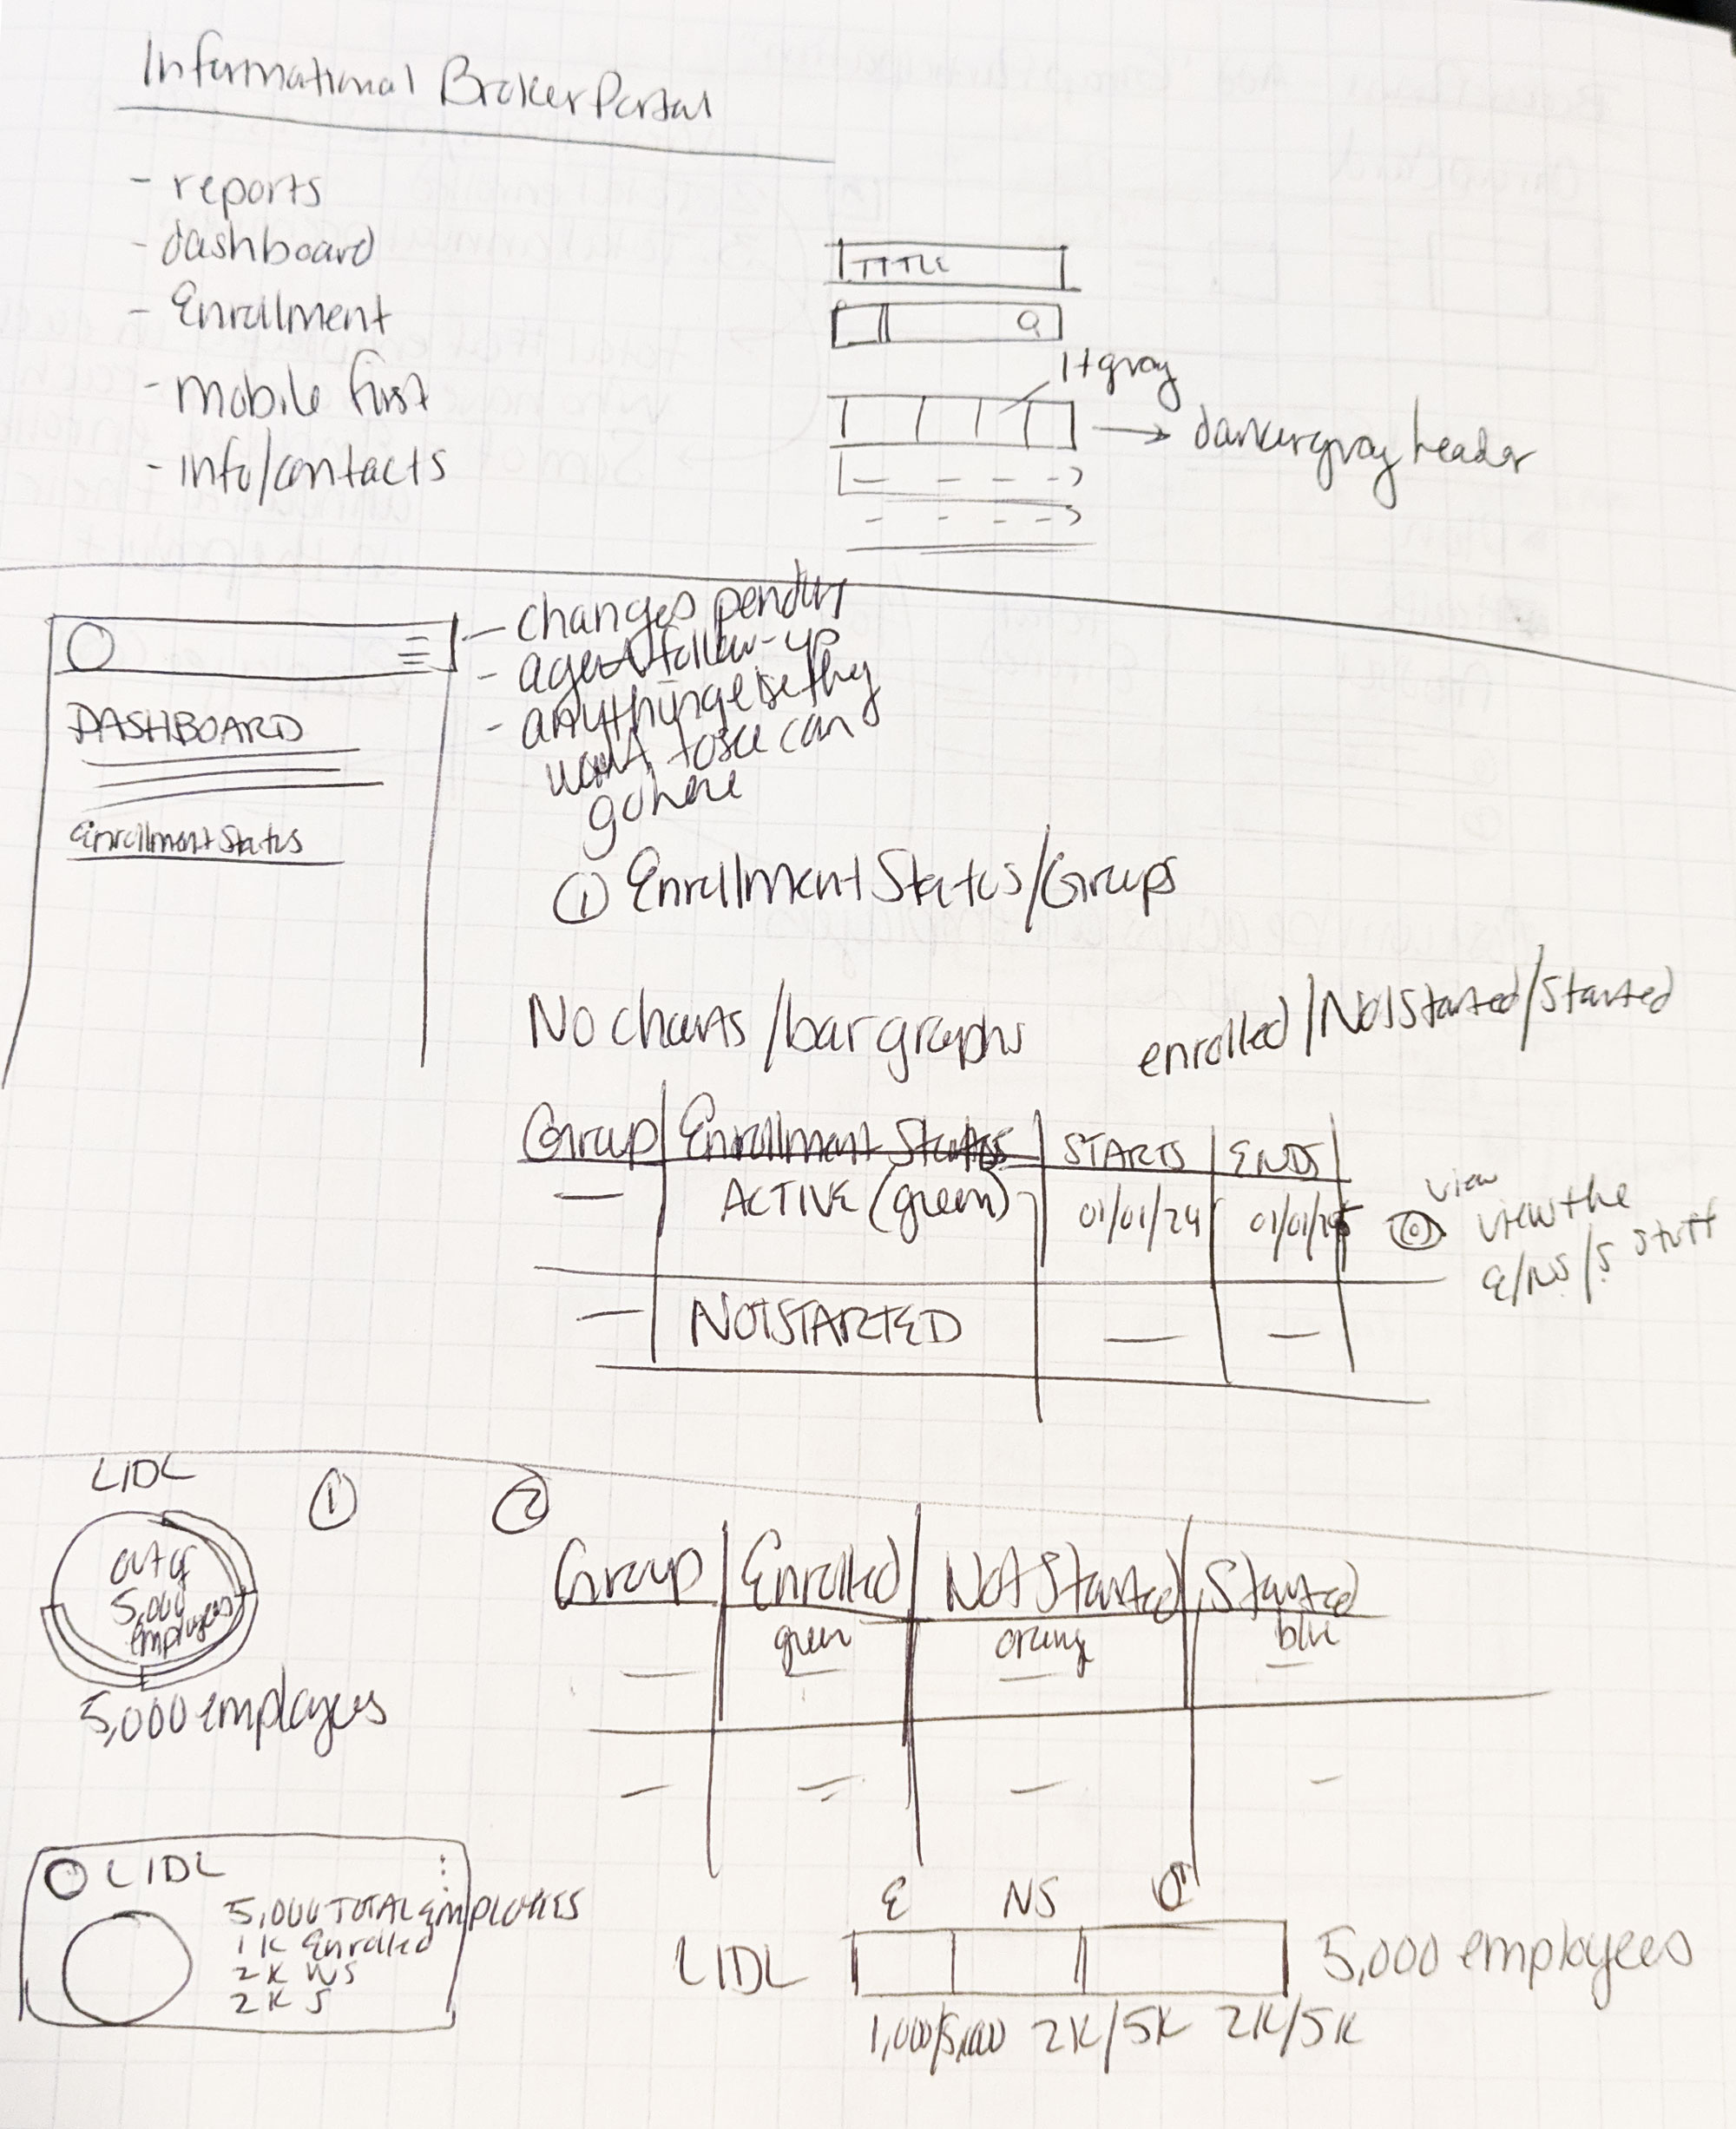 Informational Broker Portal
- reports
- dashboard
- Enrollment
- mobile first
- info/contacts
TITLE
lt gray
→ darker gray header
- changes pending
- agent follow-up
- anything else they
want to see can
go here
DASHBOARD
Enrollment Status
① Enrollment Status/Groups
No charts/bar graphs
enrolled/Not Started/Started
Group Enrollment Status STARTS ENDS
— ACTIVE (green) 01/01/24 01/01/25
view
view the
E/NS/S stuff
— NOT STARTED — —
LIDL
① ②
out of
5,000
employees
5,000 employees
Group Enrolled Not Started Started
green orange blue
LIDL
5,000 TOTAL EMPLOYEES
1K Enrolled
2K NS
2K S
E NS
LIDL 5,000 employees
1,000/5,000 2K/5K 2K/5K